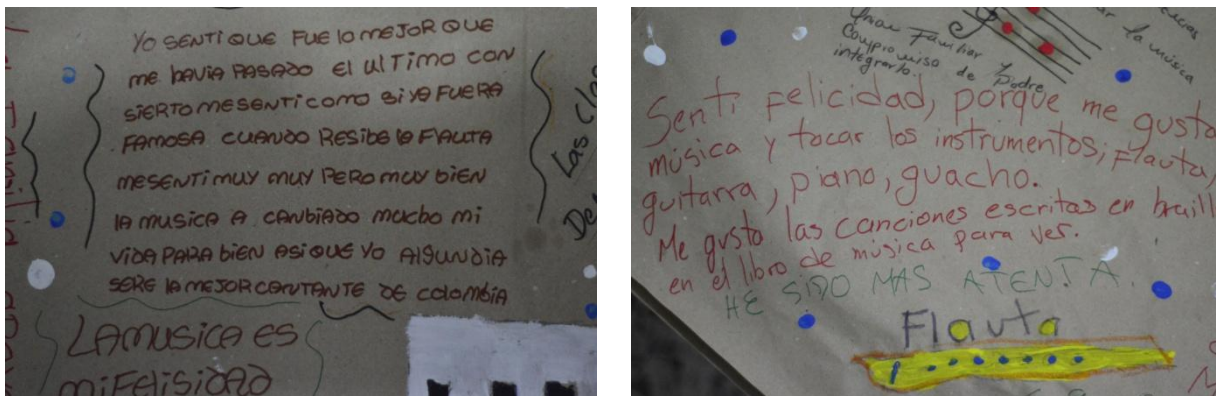 YO SENTI QUE FUE lO mEJOR QUE
me hAVIA PASADO El UlTImO CON
SIERTO ME SENTI COMO SI YA FUERA
FAMOSA CUANDO RESIBE lA FlAUTA
ME SENTI MUY MUY PERO MUY bIEN
lA MUSICA A CANbIADO mucho mi
VIDA PARA bIEN ASI QUE YO AlGUN DIA
SERE lA MEJOR CANTANTE DE ColOmbIA
LA MUSICA ES
mi FELISIDAD
Las
De
Union Familiar
Compromiso de Padre
integrarlo.
la música
Sentí felicidad, porque me gusta
música y tocar los instrumentos; Flauta,
guitarra, piano, guacho.
Me gusta las canciones escritas en braill
en el libro de música para ver.
HE SIDO MAS ATENTA.
Flauta